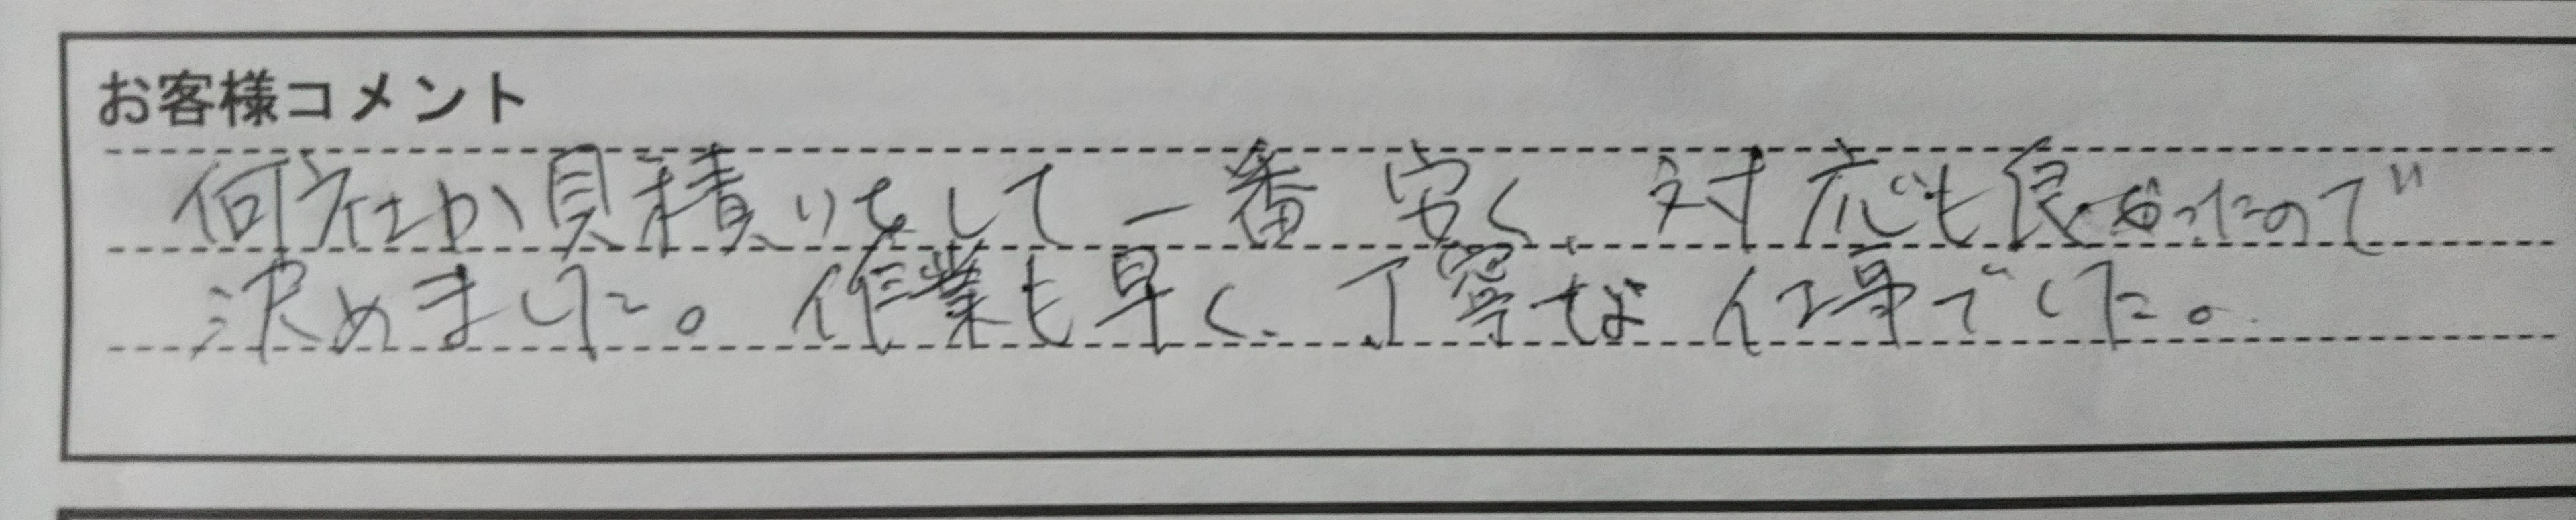 お客様コメント
何社か見積りをして一番安く、対応も良かったので
決めました。作業も早く、丁寧な仕事でした。